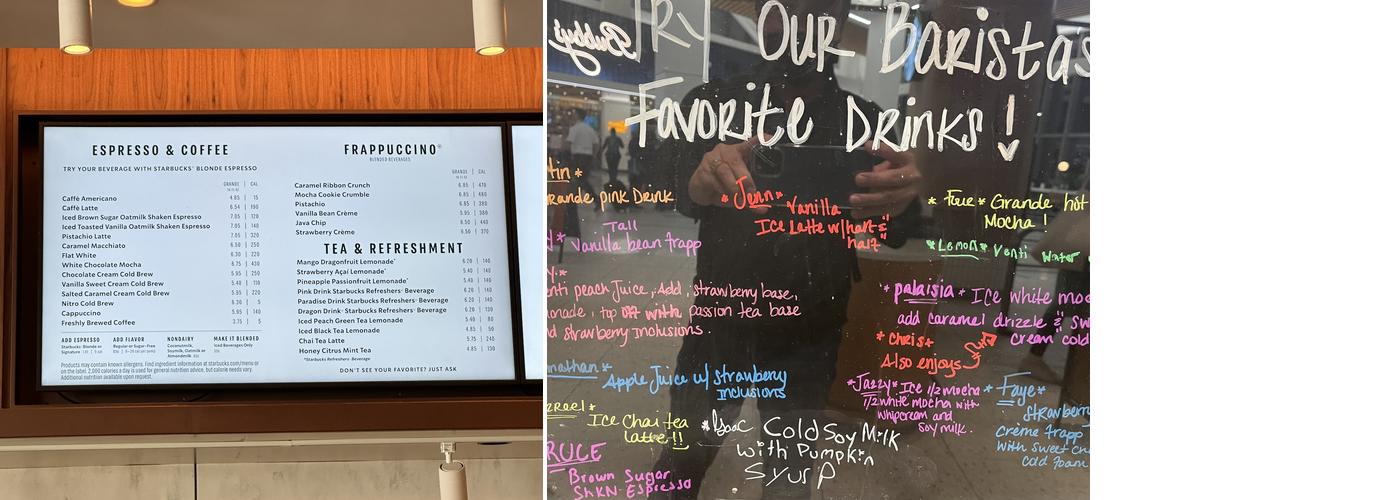 ESPRESSO & COFFEE
TRY YOUR BEVERAGE WITH STARBUCKS® BLONDE ESPRESSO
GRANDE | CAL
Caffè Americano 4.85 | 15
Caffè Latte 6.54 | 190
Iced Brown Sugar Oatmilk Shaken Espresso 7.05 | 120
Iced Toasted Vanilla Oatmilk Shaken Espresso 7.05 | 140
Pistachio Latte 7.05 | 320
Caramel Macchiato 6.30 | 250
Flat White 6.30 | 220
White Chocolate Mocha 6.75 | 430
Chocolate Cream Cold Brew 5.95 | 250
Vanilla Sweet Cream Cold Brew 5.40 | 110
Salted Caramel Cream Cold Brew 5.95 | 220
Nitro Cold Brew 6.30 | 5
Cappuccino 5.95 | 140
Freshly Brewed Coffee 3.75 | 5
ADD ESPRESSO
Starbucks® Blonde or
Signature
ADD FLAVOR
Regular or Sugar-Free
NONDAIRY
Coconutmilk,
Soymilk, Oatmilk or
Almondmilk
MAKE IT BLENDED
Iced Beverages Only
Products may contain known allergens. Find ingredient information at starbucks.com/menu or
on the label. 2,000 calories a day is used for general nutrition advice, but calorie needs vary.
Additional nutrition available upon request.
FRAPPUCCINO®
BLENDED BEVERAGES
GRANDE | CAL
Caramel Ribbon Crunch 6.85 | 470
Mocha Cookie Crumble 6.85 | 480
Pistachio 6.85 | 380
Vanilla Bean Crème 5.95 | 380
Java Chip 6.50 | 440
Strawberry Crème 6.50 | 370
TEA & REFRESHMENT
Mango Dragonfruit Lemonade* 6.20 | 140
Strawberry Açaí Lemonade* 5.40 | 140
Pineapple Passionfruit Lemonade* 5.40 | 140
Pink Drink Starbucks Refreshers® Beverage 6.20 | 140
Paradise Drink Starbucks Refreshers® Beverage 6.20 | 140
Dragon Drink® Starbucks Refreshers® Beverage 6.20 | 130
Iced Peach Green Tea Lemonade 5.40 | 80
Iced Black Tea Lemonade 4.85 | 50
Chai Tea Latte 5.75 | 240
Honey Citrus Mint Tea 4.85 | 130
*Starbucks Refreshers® Beverage
DON'T SEE YOUR FAVORITE? JUST ASK
OUR Baristas
Favorite Drinks!
tin*
Grande pink Drink
*Jenn* Vanilla
Ice Latte w/half &
half
Grande hot
Mocha!
Tall
Vanilla bean frapp
*Lemon* Venti Water
y*
enti peach Juice, Add, strawberry base,
onade, top off with passion tea base
d strawberry inclusions.
*palaisia* Ice white moc
add caramel drizzle & sw
cream cold
*chris*
Also enjoys
nathan*
Apple Juice w/ strawberry
inclusions
*Jazzy* Ice 1/2 mocha
1/2 white mocha with
whipcream and
soy milk.
*Faye*
Strawberry
crème frapp
with sweet
cold foam
zreel*
Ice Chai tea
latte!!
*Isaac Cold Soy Milk
with Pumpkin
Syurp
RUCE
Brown Sugar
ShKN Espresso